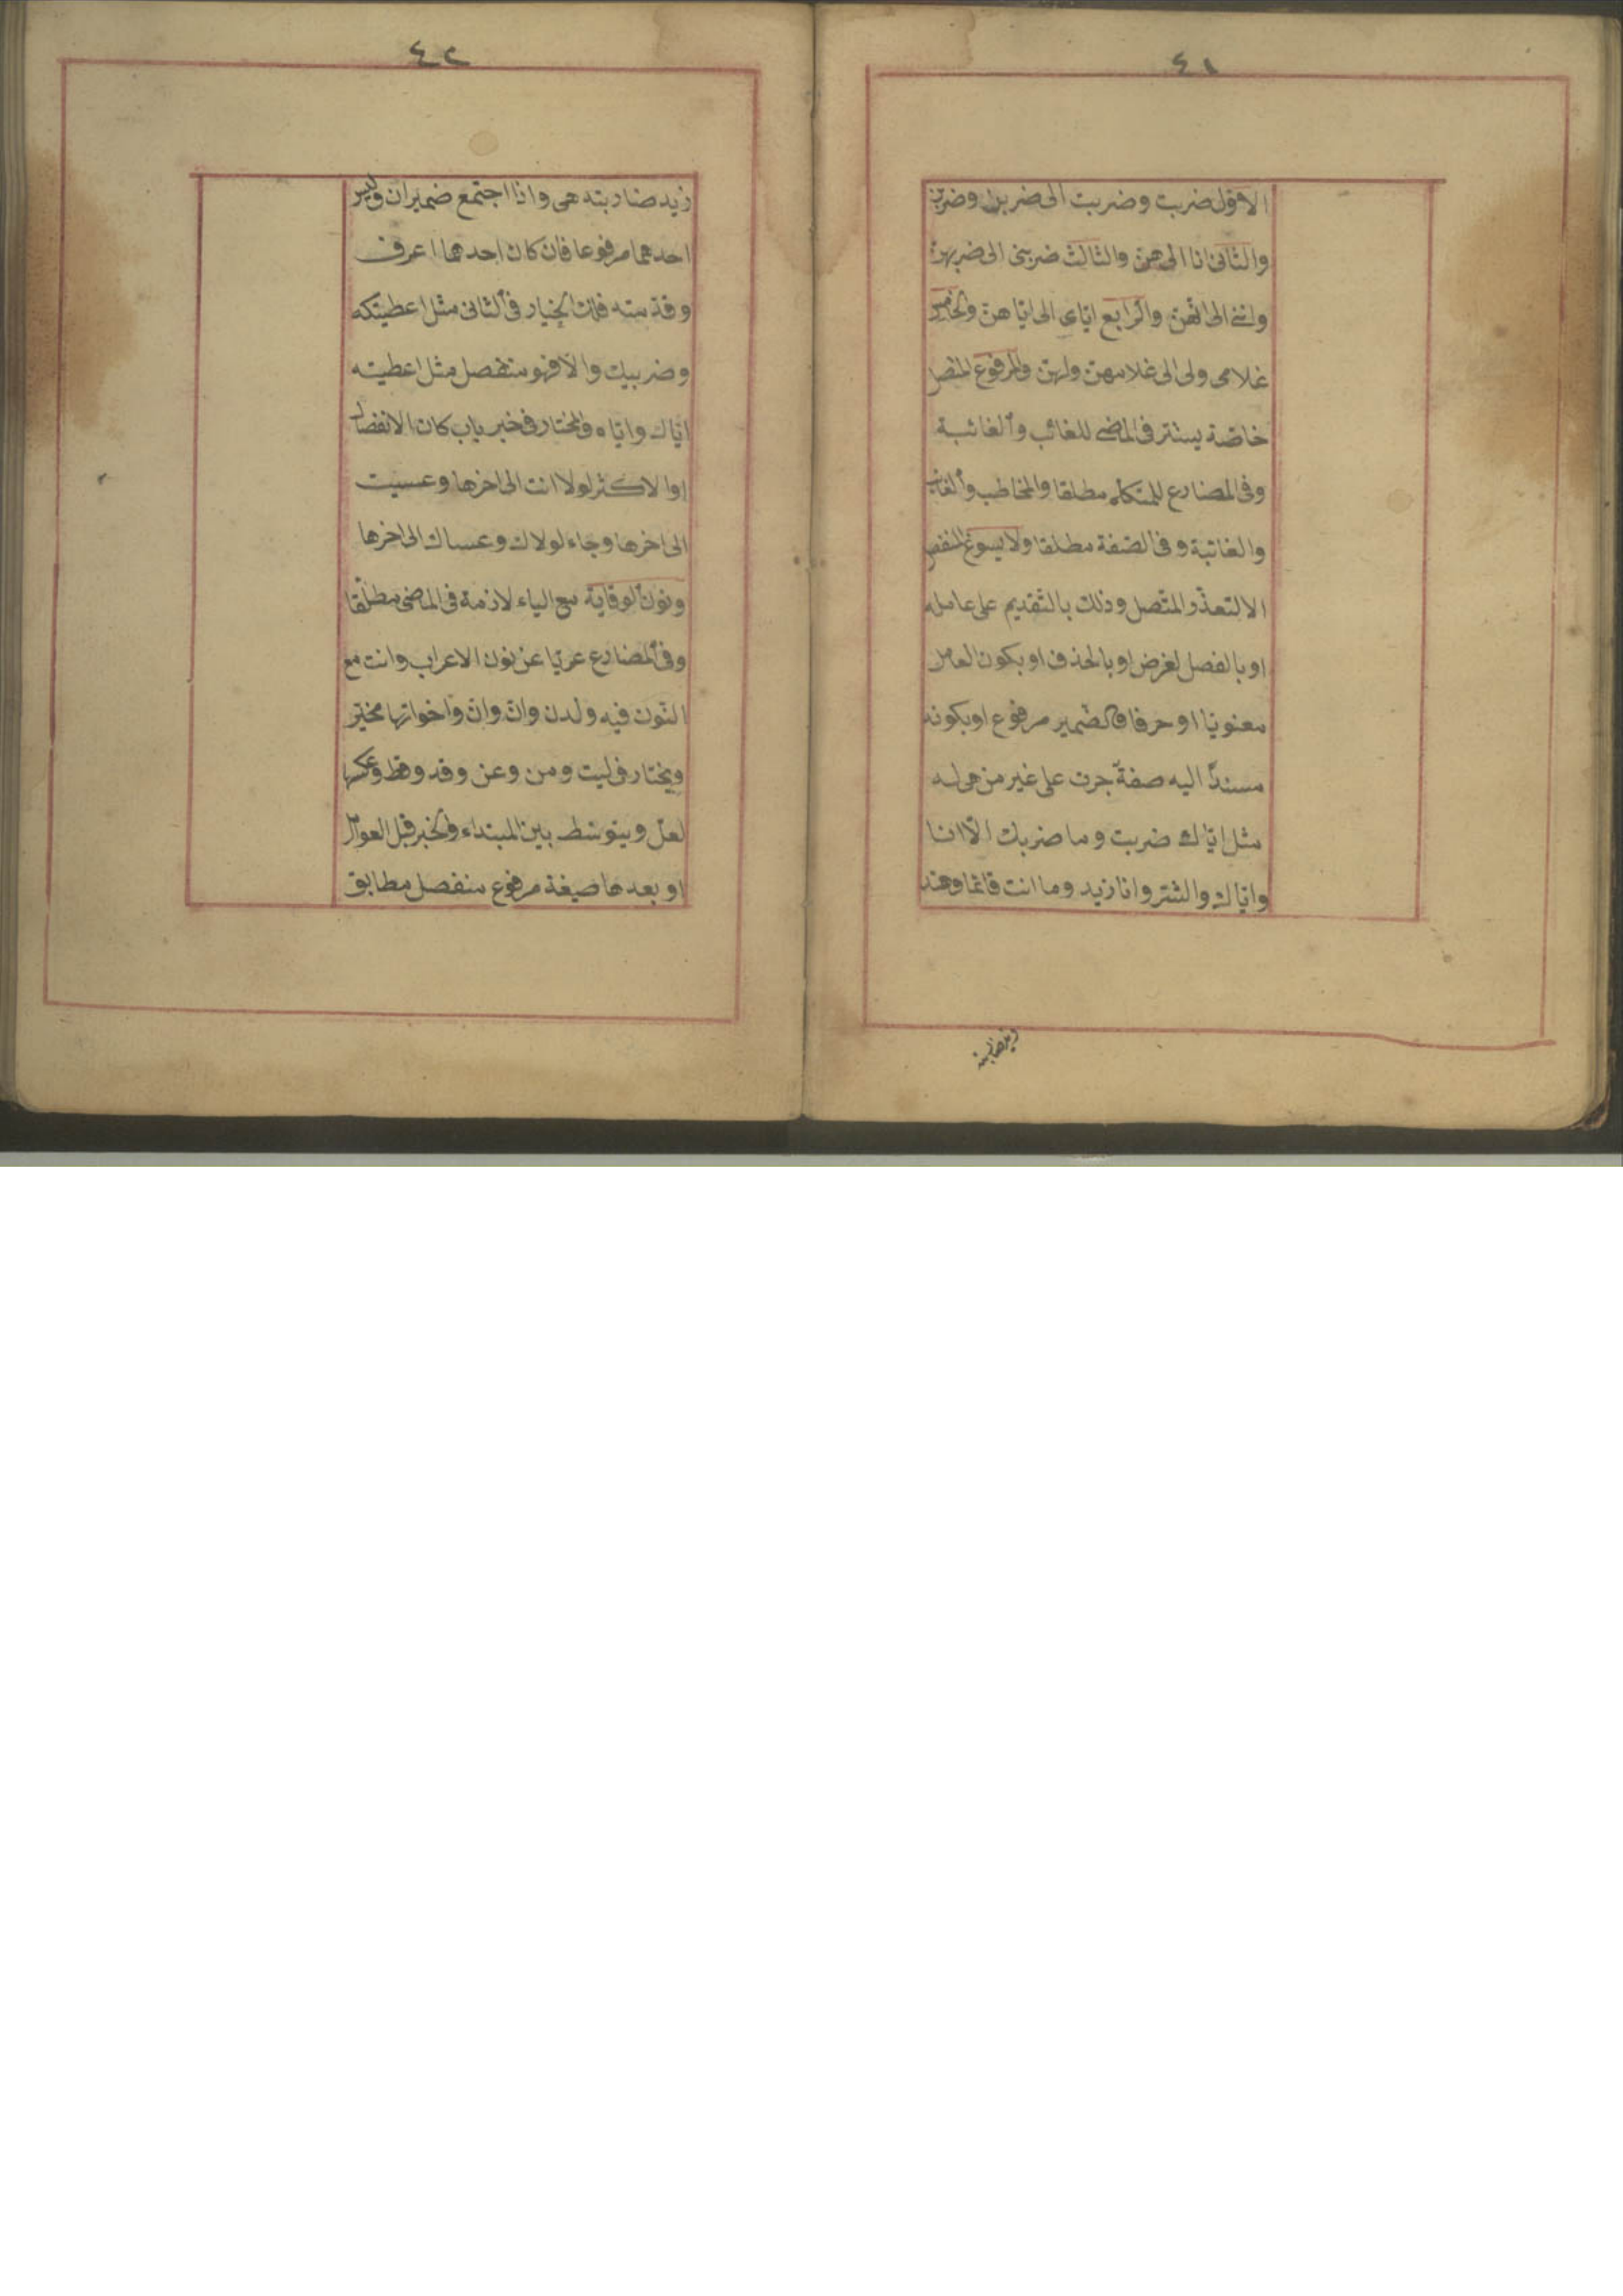 ٤١
الاوّل ضربت وضربت الى ضربن وضربن
والثانى انا الى هنّ والثالث ضربنى الى ضربهنّ
وانّنى الى انّهنّ والرّابع ايّاى الى ايّاهنّ والخامس
غلامى ولى الى غلامهنّ ولهنّ والمرفوع المتصل
خاصّة يستتر فى الماضى للغائب والغائبة
وفى المضارع للمتكلم مطلقا والمخاطب والغائب
والغائبة وفى الصّفة مطلقا ولا يسوغ المنفصل
الا لتعذّر المتّصل وذلك بالتّقديم على عامله
او بالفصل لغرض او بالحذف او بكون العامل
معنويّا او حرفا والضّمير مرفوع او بكونه
مسندًا اليه صفةٌ جرت على غير من هى له
مثل ايّاك ضربت وما ضربك الّا انا
وايّاك والشّر وانا زيد وما انت قائما وهند
زيد ضاربته
٤٢
زيد ضاربته هى واذا اجتمع ضميران وليس
احدهما مرفوعا فان كان احدهما اعرف
وقدّمته فلك الخيار فى الثانى مثل اعطيتكه
وضربيك والّا فهو منفصل مثل اعطيته
ايّاك وايّاه والمختار فى خبر باب كان الانفصال
والاكثر لولا انت الى اخرها وعسيت
الى اخرها وجاء لولاك وعساك الى اخرها
ونون الوقاية مع الياء لازمة فى الماضى مطلقا
وفى المضارع عريّا عن نون الاعراب وانت مع
النّون فيه ولدن وانّ وانّ واخواتها مخيّر
ويختار فى ليت ومن وعن وقد وقط وعكسها
لعلّ ويتوسّط بين المبتداء والخبر قبل العوامل
او بعدها صيغة مرفوع منفصل مطابق